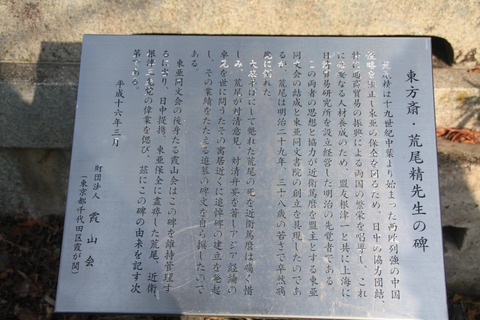 東方斎・荒尾精先生の碑
荒尾精は十九世紀中葉より始まった西洋列強の中国
侵略を憂え東亜の保全を図るため、日中の協力団結、
特に通商貿易の振興による両国の繁栄を唱導し、これ
に必要なる人材養成のため、盟友根津一と共に上海に
日清貿易研究所を設立経営した明治の先覚者である。
この両者の思想と協力が近衛篤麿を盟主とする東亜
同文会の結成と東亜同文書院の創立を具現したのであ
るが、荒尾は明治二十九年、三十八歳の若さで卒然病
に斃れた。
大志半ばにして斃れた荒尾の死を近衛篤麿は痛く惜
しみ、荒尾が対清意見、対清弁妄を著しアジア経綸の
卓見を世に問うたその寓居近くに追悼碑の建立を発起
し、その業績をたたえる追慕の碑文を自ら撰したので
ある。
東亜同文会の後身たる霞山会はこの碑を維持管理す
るに当り、日中提携、東亜保全に尽瘁した荒尾、近衛
根津三先覚の偉業を偲び、茲にこの碑の由来を記す次
第である。
平成十六年三月
財団法人 霞山会
(東京都千代田区霞が関)